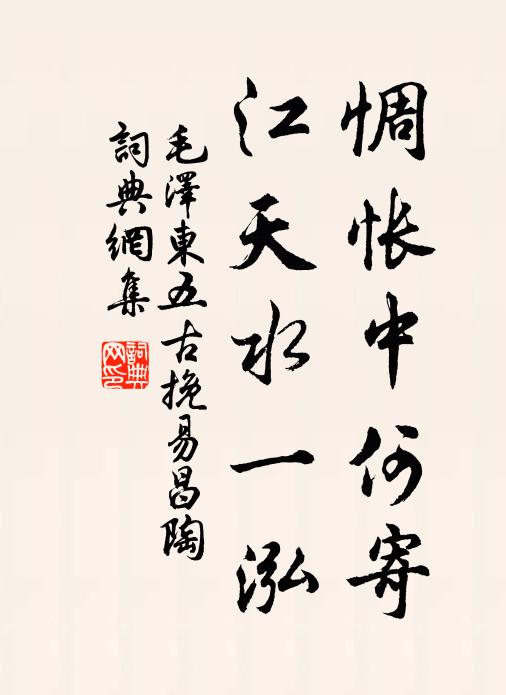 惆怅中何寄
江天水一泓
毛澤東五古挽易昌陶
詞典網集
詞典
网印